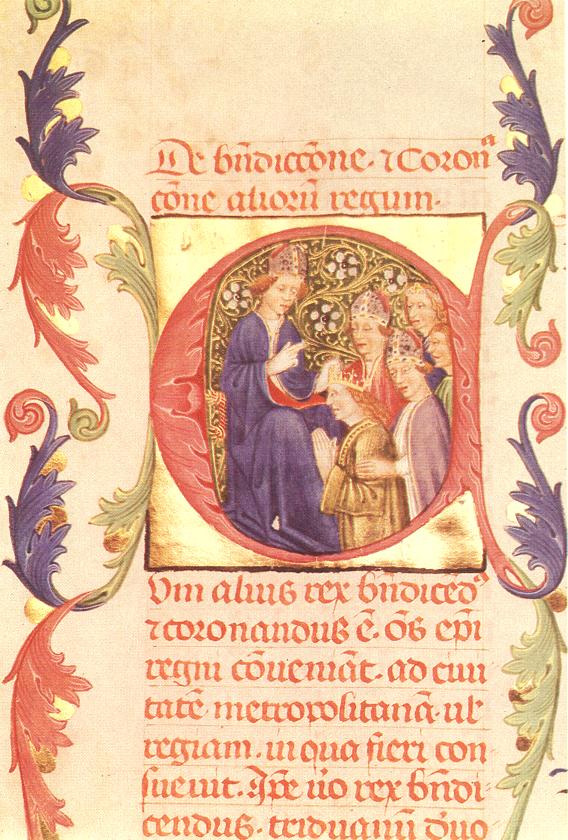 De bn̄diccōne · ⁊ Coronᵃ
cōne alioru̅ regum ·
CVm alius rex bn̄dicedꝰ
⁊ coronandus ē. ōs ep̄i
regni cōueniāt. ad ciui
tatē metropolitanā. ul̓
regiam. in qua fieri con
sueuit. Ip̄e u̓o rex bn̄di
cendus. triduanū d̓uo